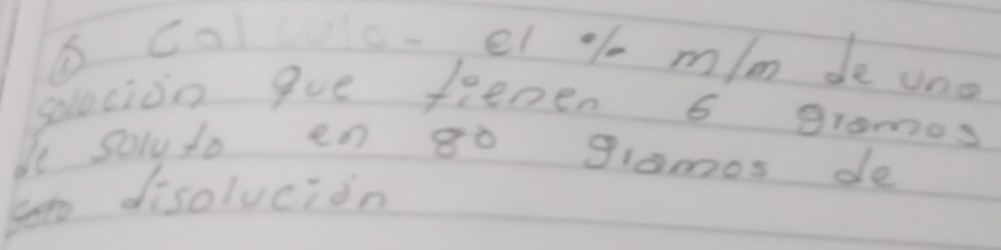 ① Calcula- el % m/m de una
solución que tienen 6 gramos
de soluto en 80 gramos de
disolución